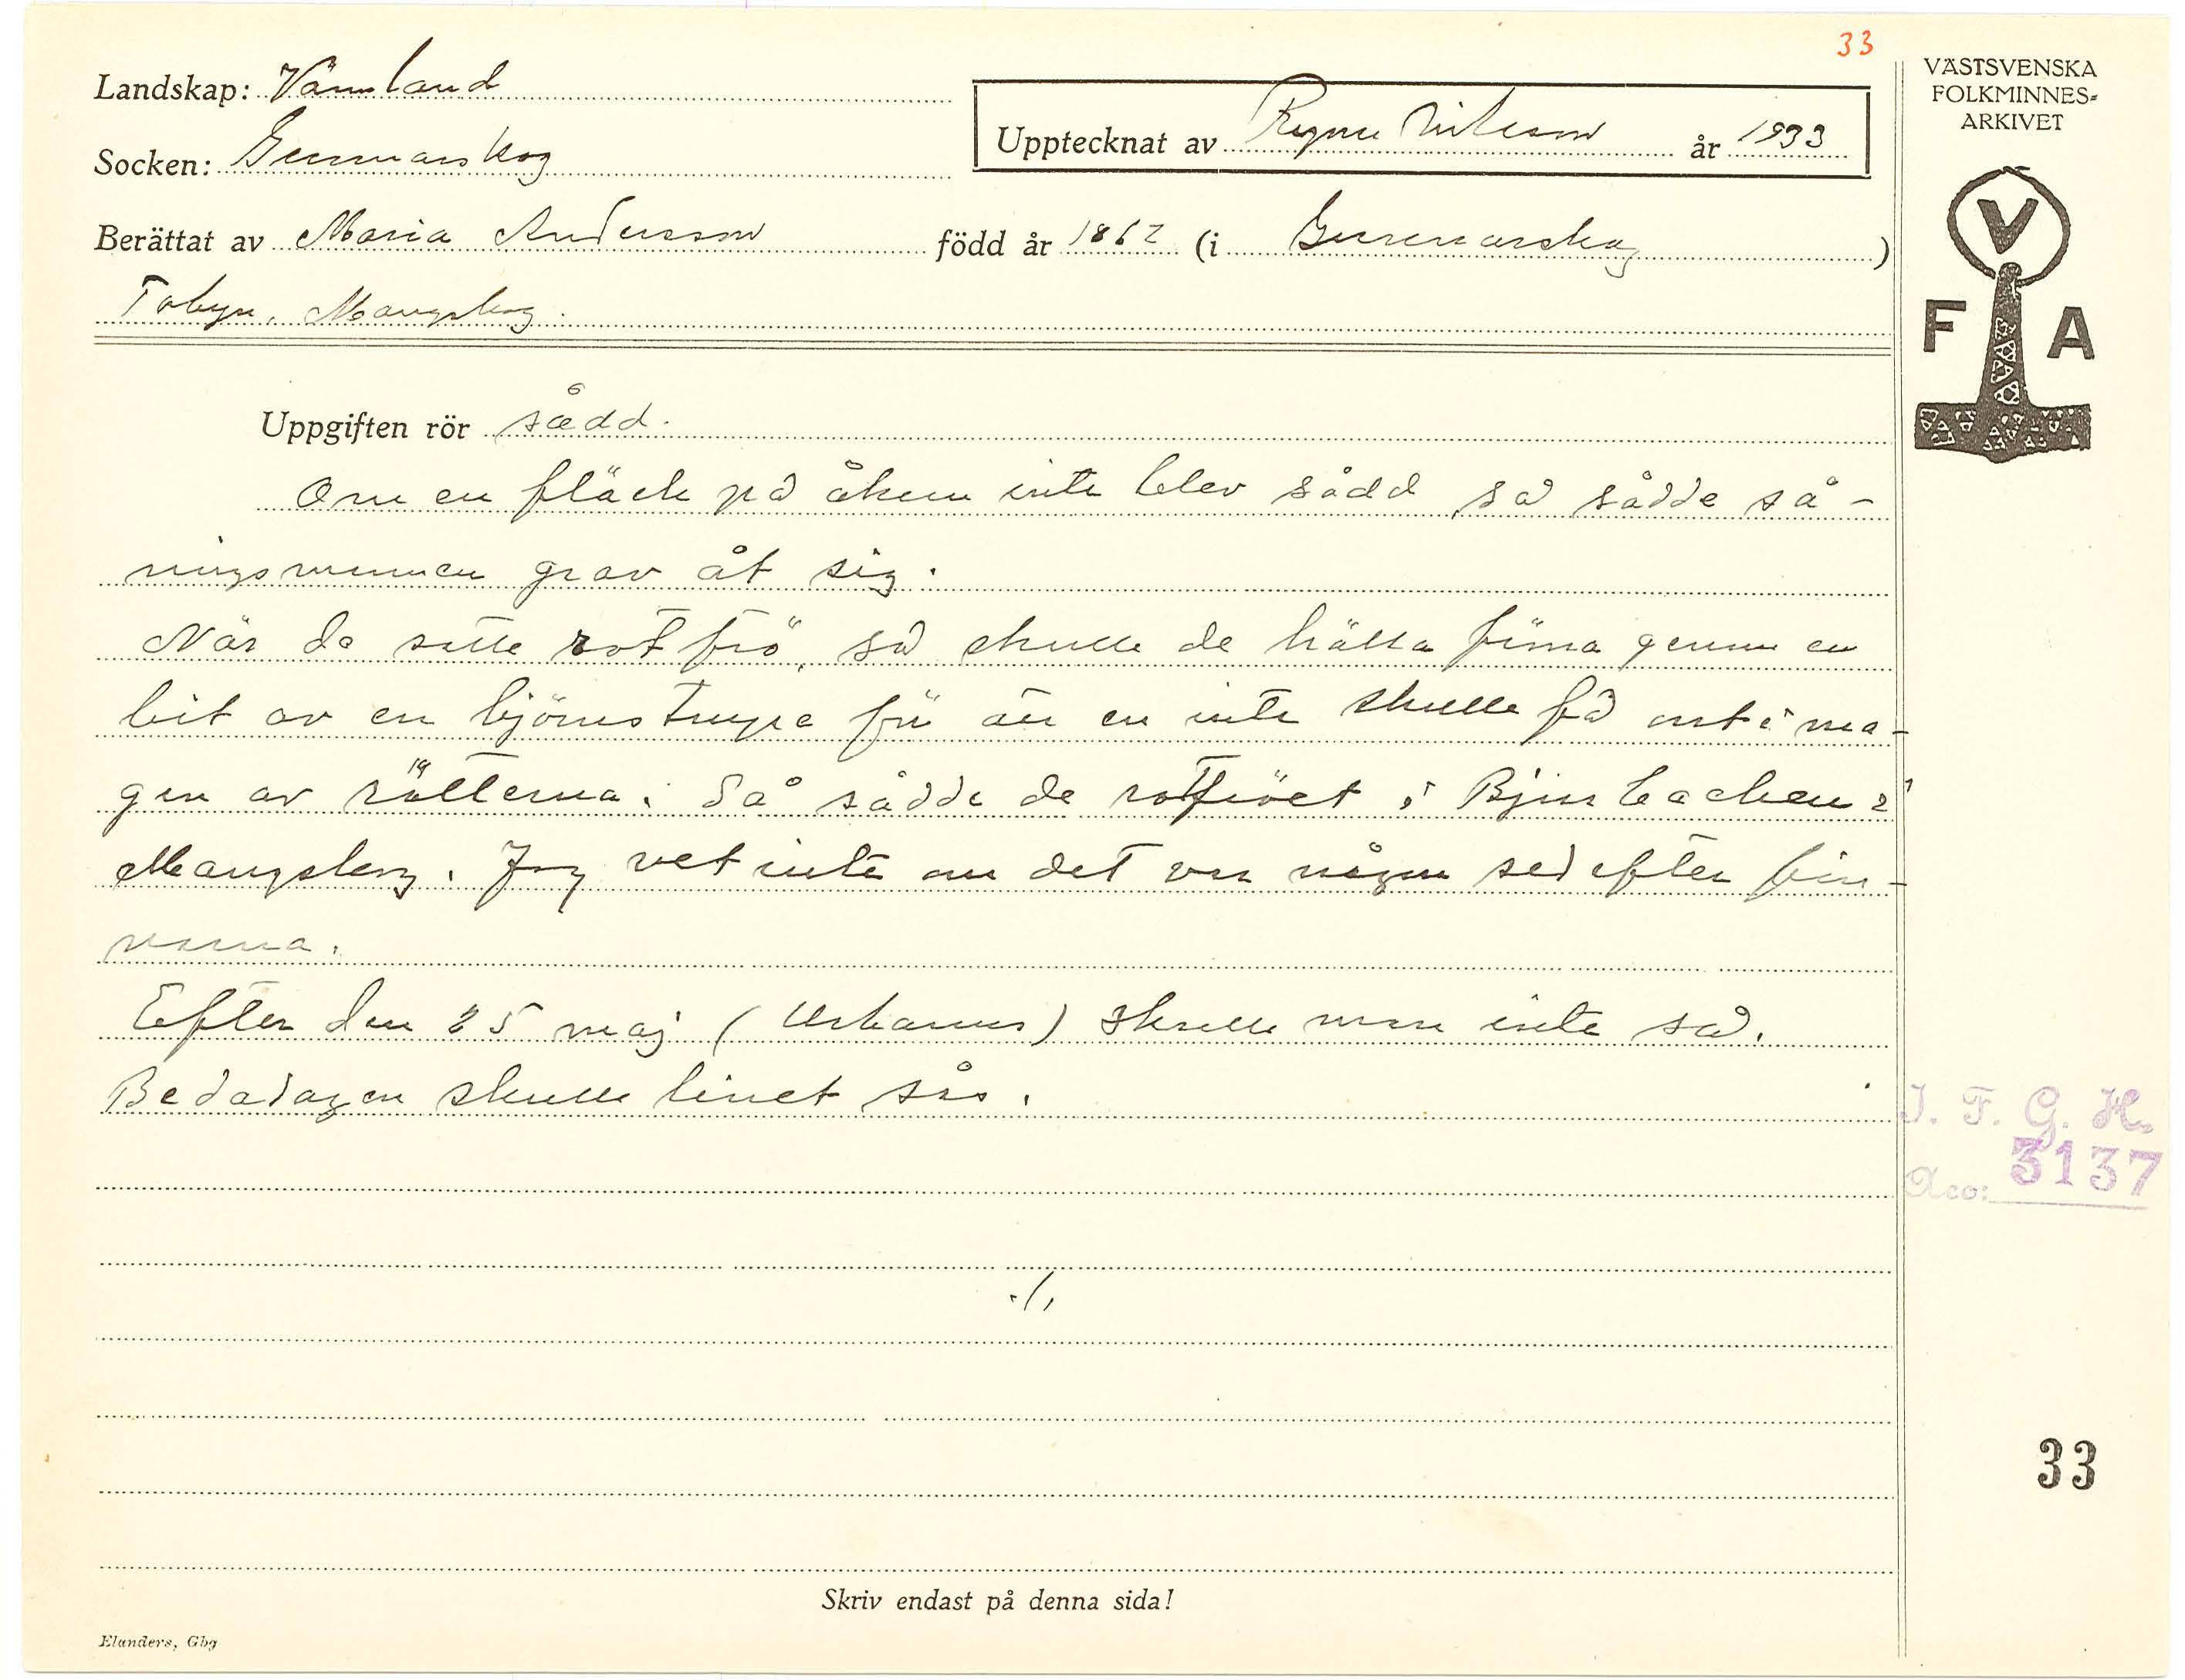 33
Landskap: Värmland
Socken: Gunnarskog
Upptecknat av Ragnar Nilsson år 1933
VÄSTSVENSKA
FOLKMINNES-
ARKIVET
V
F A
Berättat av Maria Andersson född år 1862 (i Gunnarskog)
Tobyn, Mangskog.
Uppgiften rör sådd.
Om en fläck på åkern inte blev sådd, så sådde så-
ningsmannen grav åt sig.
När de satte rotfrö, så skulle de hälla fröna genom en
bit av en björnstrupe för att en inte skulle få ont i ma-
gen av rötterna. Så sådde de rotfröet i Björnbacken i
Mangskog. Jag vet inte om det var någon sed efter fin-
narna.
Efter den 25 maj (Urbanus) skulle man inte så.
Bedadagen skulle linet sås.
I. F. G. H.
Acc: 3137
./.
33
Skriv endast på denna sida!
Elanders, Gbg